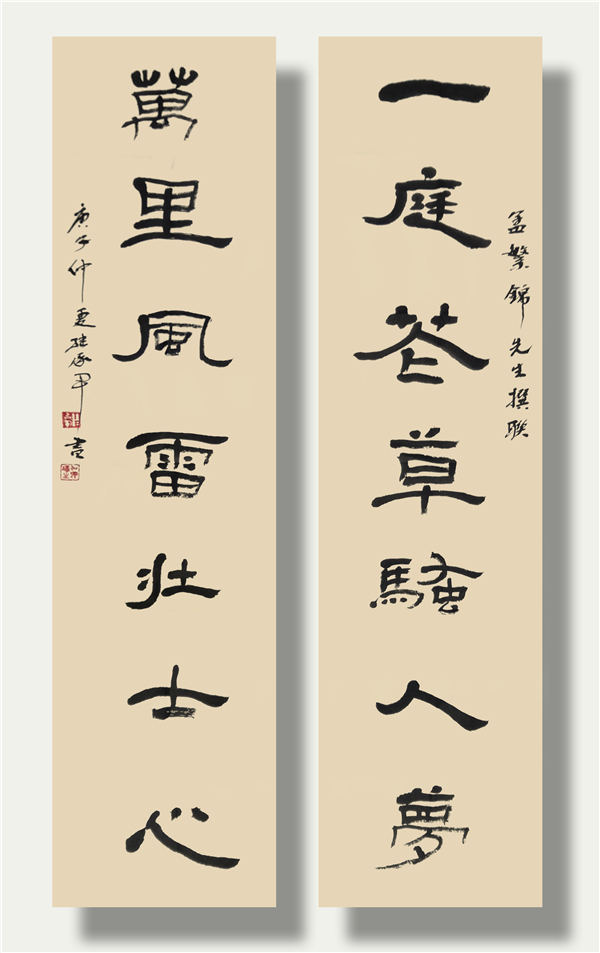 一庭花草騷人夢
孟繁錦先生撰聯
萬里風雷壯士心
庚子仲夏
書